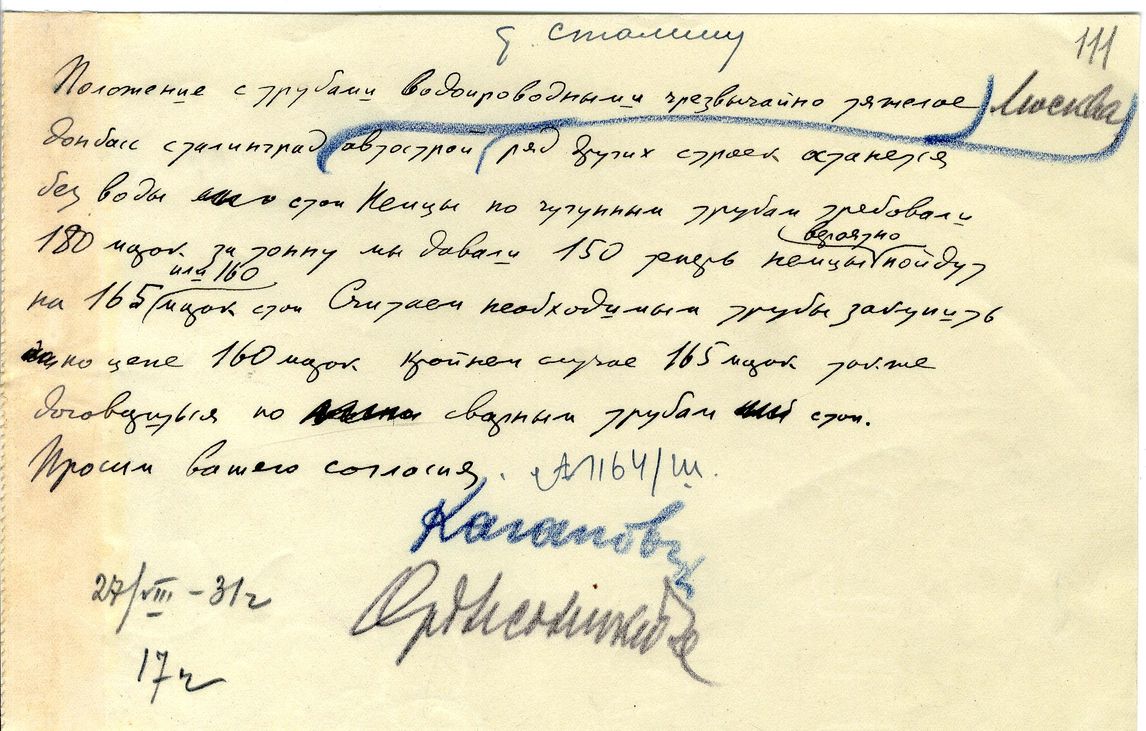 т Сталину
111
Положение с трубами водопроводными чрезвычайно тяжелое Москва
Донбасс сталинград автострой ряд других строек останется
без воды стоп Немцы по чугунным трубам требовали
180 марок за тонну мы давали 150 теперь немцы вероятно пойдут
на 165 или 160 марок стоп Считаем необходимым трубы закупить
по цене 160 марок крайнем случае 165 марок также
договориться по сварным трубам стоп.
Просим вашего согласия. № 1164/ш.
Каганович
Орджоникидзе
27/VIII – 31 г
17 ч